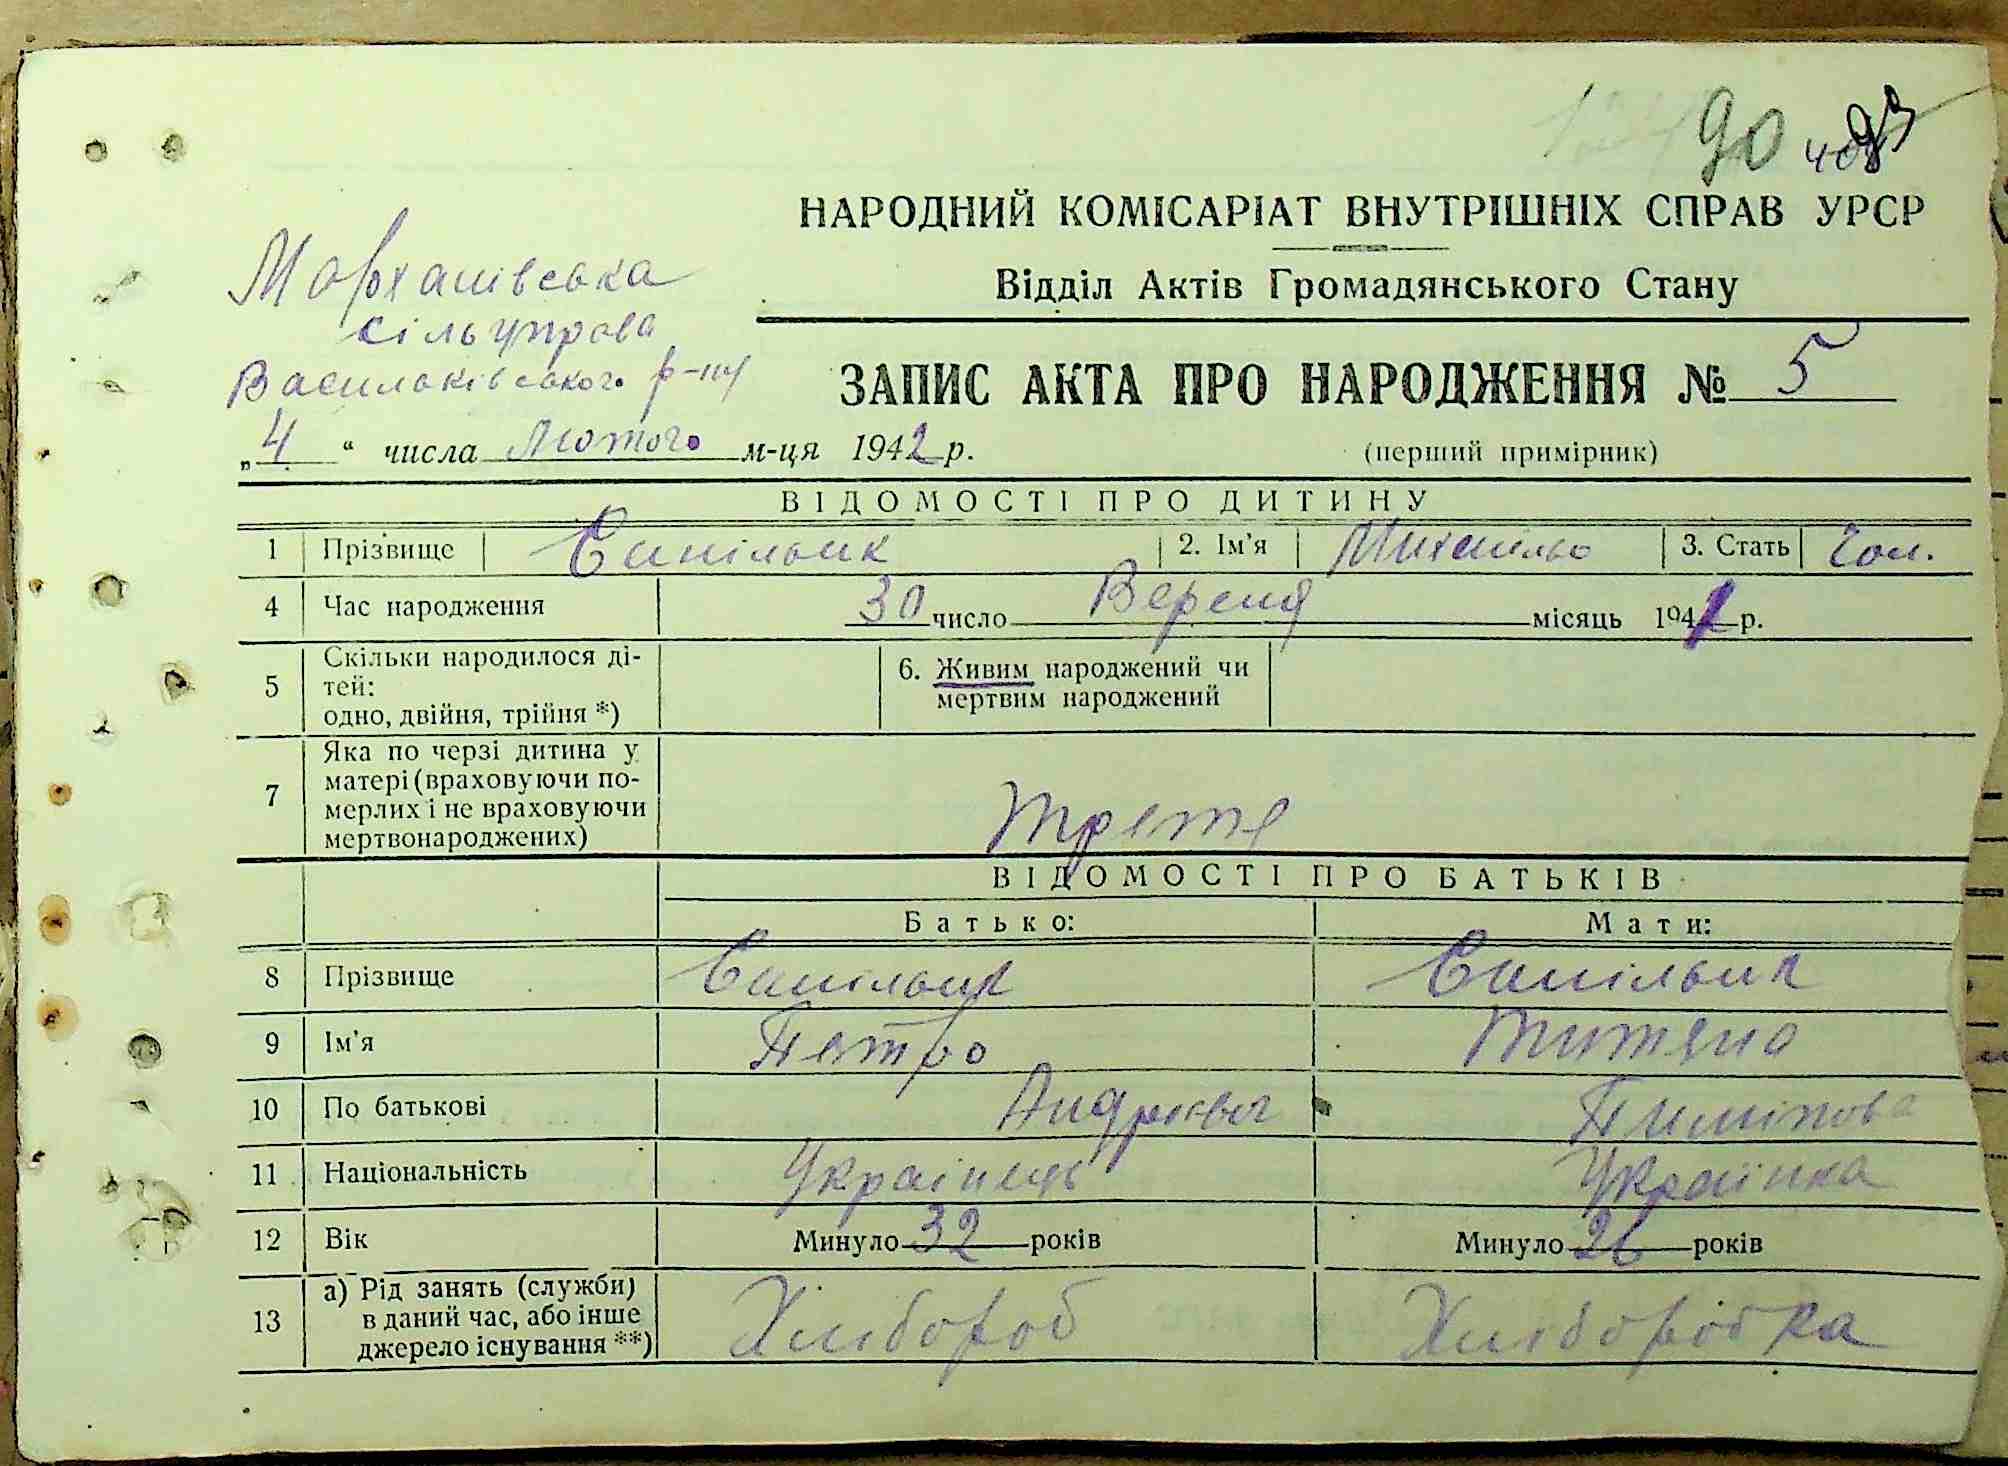 90
НАРОДНИЙ КОМІСАРІАТ ВНУТРІШНІХ СПРАВ УРСР
Відділ Актів Громадянського Стану
Мархалівська
сільуправа
Васильківського р-ну
ЗАПИС АКТА ПРО НАРОДЖЕННЯ № 5
„4“ числа Лютого м-ця 1942 р.
(перший примірник)
ВІДОМОСТІ ПРО ДИТИНУ
1 Прізвище 2. Ім'я Михайло 3. Стать Чол.
4 Час народження 30 число Вересня місяць 1941 р.
5 Скільки народилося ді-
тей:
одно, двійня, трійня *)
6. Живим народжений чи
мертвим народжений
7 Яка по черзі дитина у
матері (враховуючи по-
мерлих і не враховуючи
мертвонароджених)
Третя
ВІДОМОСТІ ПРО БАТЬКІВ
Батько: Мати:
8 Прізвище
9 Ім'я Петро Титяна
10 По батькові Андрієвич
11 Національність Українець Українка
12 Вік Минуло 32 років Минуло 26 років
13 а) Рід занять (служби)
в даний час, або інше
джерело існування **)
Хлібороб Хліборобка